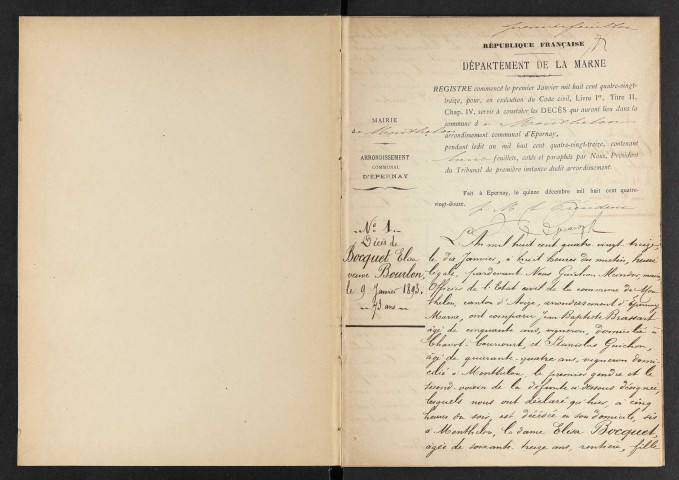 premier feuillet
RÉPUBLIQUE FRANÇAISE
DÉPARTEMENT DE LA MARNE
REGISTRE commencé le premier Janvier mil huit cent quatre-vingt-
treize, pour, en exécution du Code civil, Livre Ier, Titre II,
Chap. IV, servir à constater les DÉCÈS qui auront lieu dans la
commune d e Monthelon
arrondissement communal d'Epernay,
pendant ledit an mil huit cent quatre-vingt-treize, contenant
feuillets, cotés et paraphés par Nous, Président
du Tribunal de première instance dudit arrondissement.
Fait à Epernay, le quinze décembre mil huit cent quatre-
vingt-douze.
MAIRIE
de Monthelon
ARRONDISSEMENT
COMMUNAL
D'ÉPERNAY
No 1
Décès de
Bocquet Elisa
veuve Bourlon,
le 9 Janvier 1893.
73 ans
L'An mil huit cent quatre vingt-treize
le dix Janvier, à huit heures du matin, heure
légale, pardevant Nous Guichon maire
Officier de l'Etat civil de la commune de Mon
thelon, canton d'Avize, arrondissement d'Epernay
Marne, ont comparu Jean Baptiste Brassart
âgé de cinquante ans, vigneron, domicilié à
Chavot-Courcourt, et Stanislas Guichon,
âgé de quarante-quatre ans, vigneron domi-
cilié à Monthelon, le premier gendre et le
second voisin de la défunte ci-dessous désignée,
lesquels nous ont déclaré qu'hier, à cinq
heures du soir, est décédée en son domicile, sis
à Monthelon, la dame Elisa Bocquet,
âgée de soixante-treize ans, rentière, fille